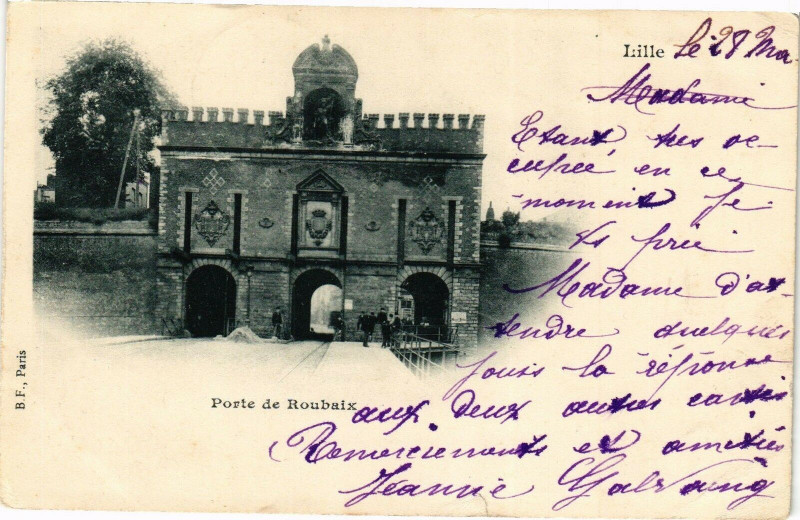 Lille le 28 Mai
Madame
Etant tres oc-
cupée en ce
moment je
vs prie
Madame d'at-
tendre quelques
jours la réponse
aux deux autres cartes
Remerciements et amitiés
Jeannie
Porte de Roubaix
B.F., Paris